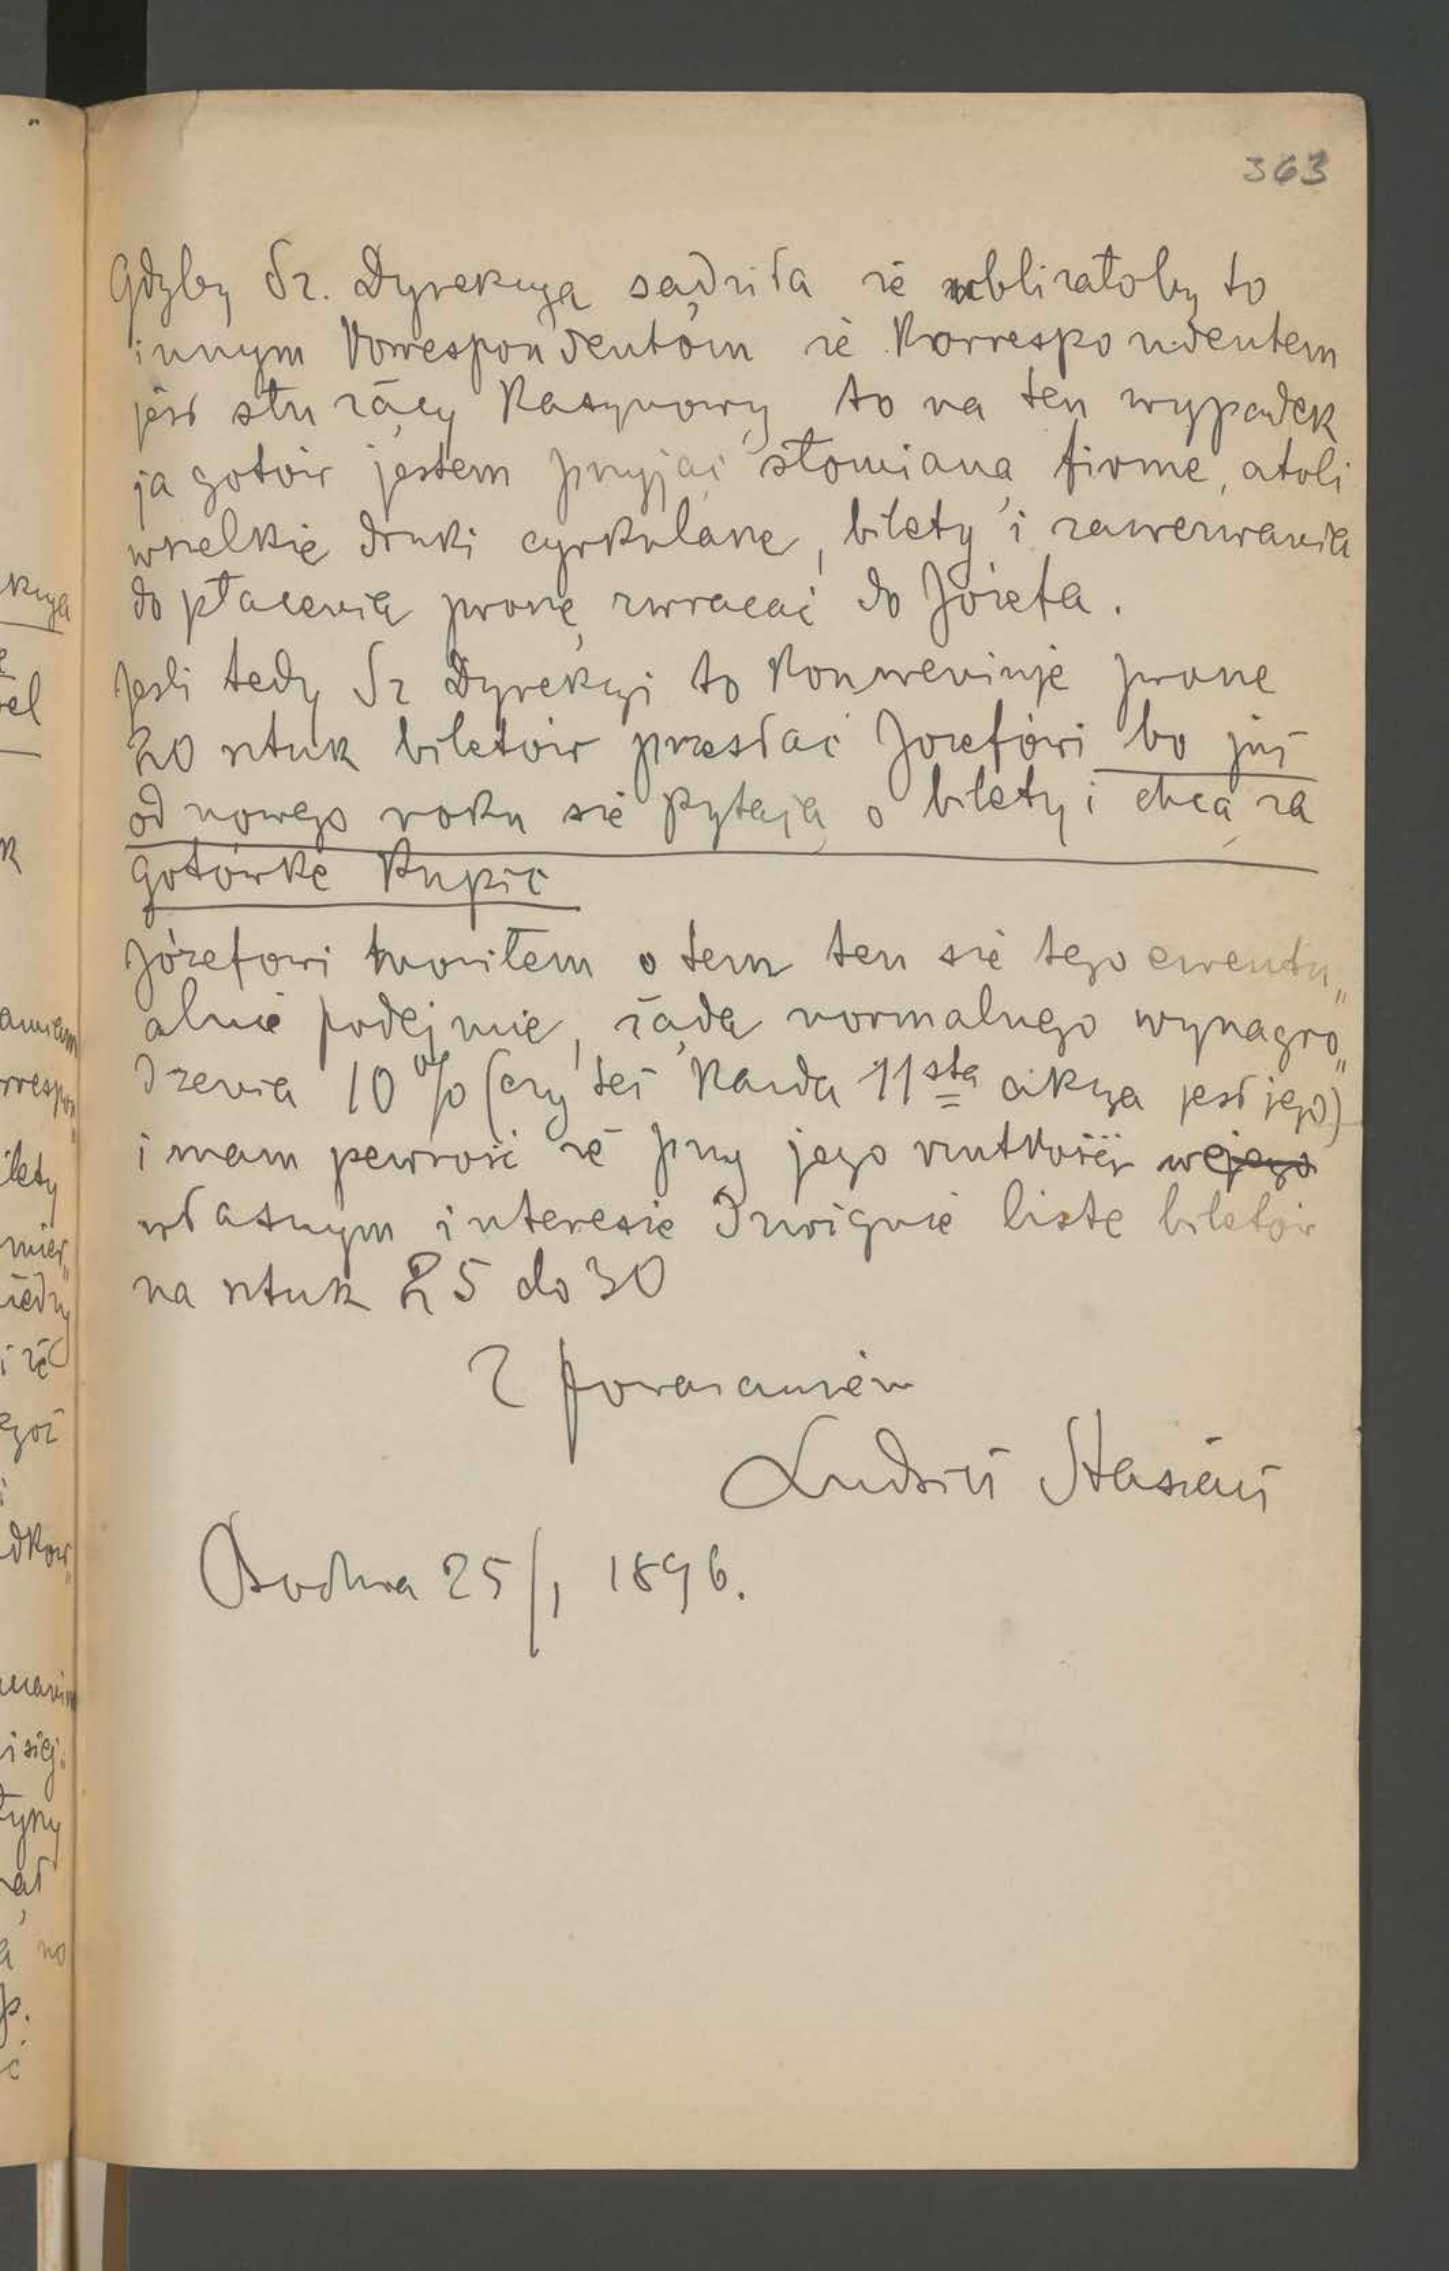 363
Gdyby Sz. Dyrekcya sądziła że ubliżałoby to
innym korrespondentom że korrespondentem
jest służący kasynowy to na ten wypadek
ja gotów jestem przyjąć słomianą firmę, atoli
wszelkie druki cyrkularze, bilety i zawezwania
do płacenia proszę zwracać do Józefa.
Jeśli tedy Sz Dyrekcyi to konweniuje proszę
20 sztuk biletów przesłać Józefowi bo już
od nowego roku się pytają o bilety i chcą za
gotówkę kupić
Józefowi mówiłem o tem ten się tego ewentu„
alnie podejmie, żąda normalnego wynagro„
dzenia 10% (czy też każda 11sta akcya jest jego)
i mam pewność że przy jego rzutkości w jego
własnym interesie dźwignie listę biletów
na sztuk 25 do 30
Z poważaniem
Ludwik Stasiak
Bochnia 25/1 1896.